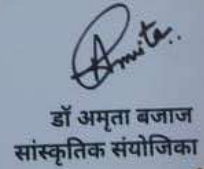 Amrita..
डॉ अमृता बजाज
सांस्कृतिक संयोजिका